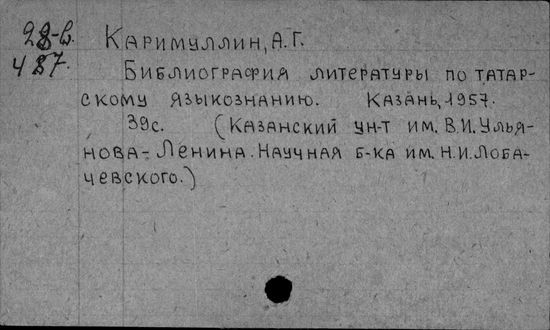 28-в. Каримуллин, А.Г.
487. Библиография литературы по татар-
скому языкознанию. Казань, 1957.
39с. (Казанский ун-т им. В.И. Улья-
нова-Ленина. Научная б-ка им. Н.И. Лоба-
чевского.)